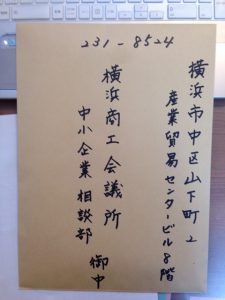 231-8524
横浜市中区山下町2
産業貿易センタービル8階
横浜商工会議所
中小企業相談部 御中